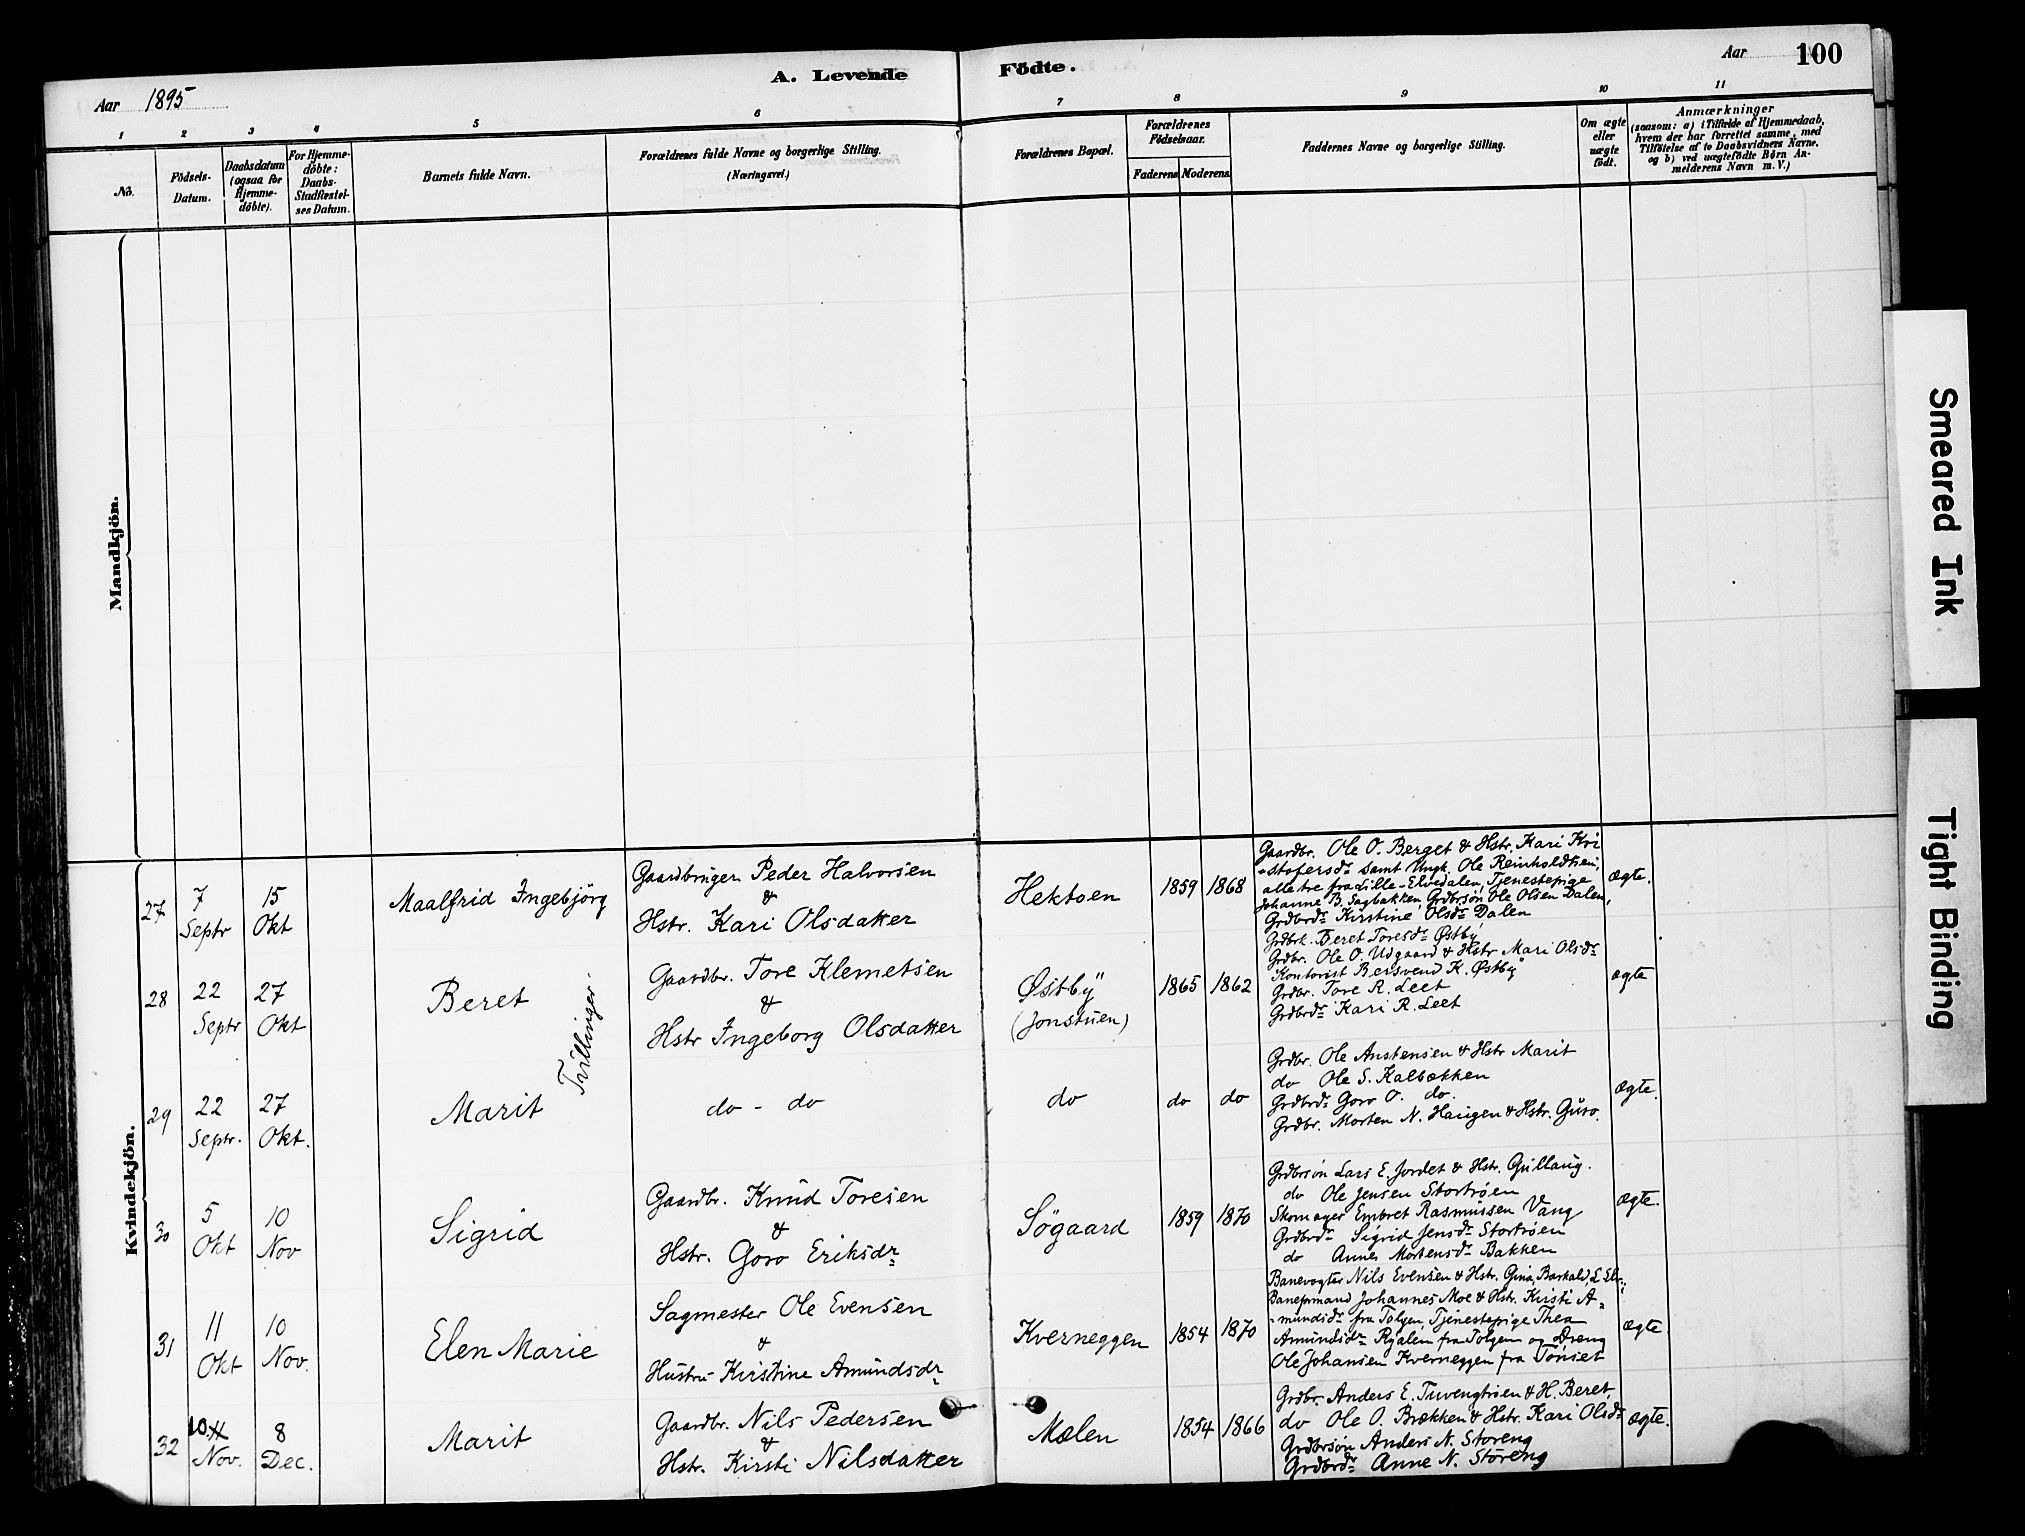 A. Levende Födte.
Aar 1895
Aar 100
1 2 3 4 5 6 7 8 9 10 11
No.
Födsels-Datum.
Daabsdatum (ogsaa for Hjemme-döbte).
For Hjemme-döbte: Daabs-Stadfæstel-ses Datum.
Barnets fulde Navn.
Forældrenes fulde Navne og borgerlige Stilling.
(Næringsvei.)
Forældrenes Bopæl.
Forældrenes Födselsaar.
Faderens Moderens
Faddernes Navne og borgerlige Stilling.
Om ægte eller uægte födt.
Anmærkninger
(saasom: a) i Tilfælde af Hjemmedaab,
hvem der har forrettet samme, med
Tilföielse af to Daabsvidners Navne,
og b) ved uægtefödte Börn An-
melderens Navn m. V.)
Mandkjön.
Kvindekjön.
27
7 Septr
15 Okt
Maalfrid Ingebjörg
Gaardbruger Peder Halvorsen
&
Hstr. Kari Olsdatter
Hektoen
1859 1868
Gaardbr. Ole O. Berget & Hstr. Kari Kri
-stofersdr samt Ungk. Ole Reinholdtsen,
alle tre fra Lille-Elvedalen, Tjenestepige
Johanne B. Sagbakken, Grdbrsön Ole Olsen Dalen,
Grdbrdr Kirstine Olsdr Dalen
ægte.
28
22 Septr
27 Okt
Beret
Tvillinger.
Gaardbr. Tore Klemetsen
&
Hstr Ingeborg Olsdatter
Østby
(Jonstuen)
1865 1862
Grdbrk. Beret Toresdr Østby
Grdbr. Ole O. Udgaard & Hstr Mari Olsdr
Kontorist Bersvend K. Østby
Grdbr. Tore R. Leet
Grdbrdr Kari R. Leet
ægte
29
22 Septr.
27 Okt.
Marit
do - do
do
do do
Grdbr. Ole Anstensen & Hstr Marit
do Ole S. Kalbækken
Grdbrdr Goro O. do.
Grdbr. Morten N. Haugen & Hstr. Guro.
ægte.
30
5 Okt
10 Nov
Sigrid
Gaardbr. Knud Toresen
&
Hstr. Goro Eriksdr
Søgaard
1859 1870
Grdbrsön Lars E. Jordet & Hstr. Gullaug.
do Ole Jensen Stortrøen
Skomager Embret Rasmussen Vang
Grdbrdr Sigrid Jensdr Stortrøen
do Anne Mortensdr Bakken
ægte.
31
11 Okt
10 Nov.
Elen Marie
Sagmester Ole Evensen
&
Hustru Kirstine Amundsdr
Kverneggen
1854 1870
Banevogter Nils Evensen & Hstr. Gina, Barkald, L. Elv.,
Baneformand Johannes Moe & Hstr. Kirsti A-
-mundsdr fra Tolgen, Tjenestepige Thea
Amundsdr Ryalen fra Tolgen og Dreng
Ole Johansen Kverneggen fra Tönset
ægte.
32
10. Nov.
8 Dec.
Marit
Gaardbr. Nils Pedersen
&
Hstr. Kirsti Nilsdatter
Mælen
1854 1866
Grdbr. Anders E. Tuvengtrøen & H. Beret,
do Ole O. Brækken & Hstr. Kari Olsdr
Grdbrsön Anders N. Storeng
Grdbrdr Anne N. Storeng
ægte.
Smeared Ink
Tight Binding